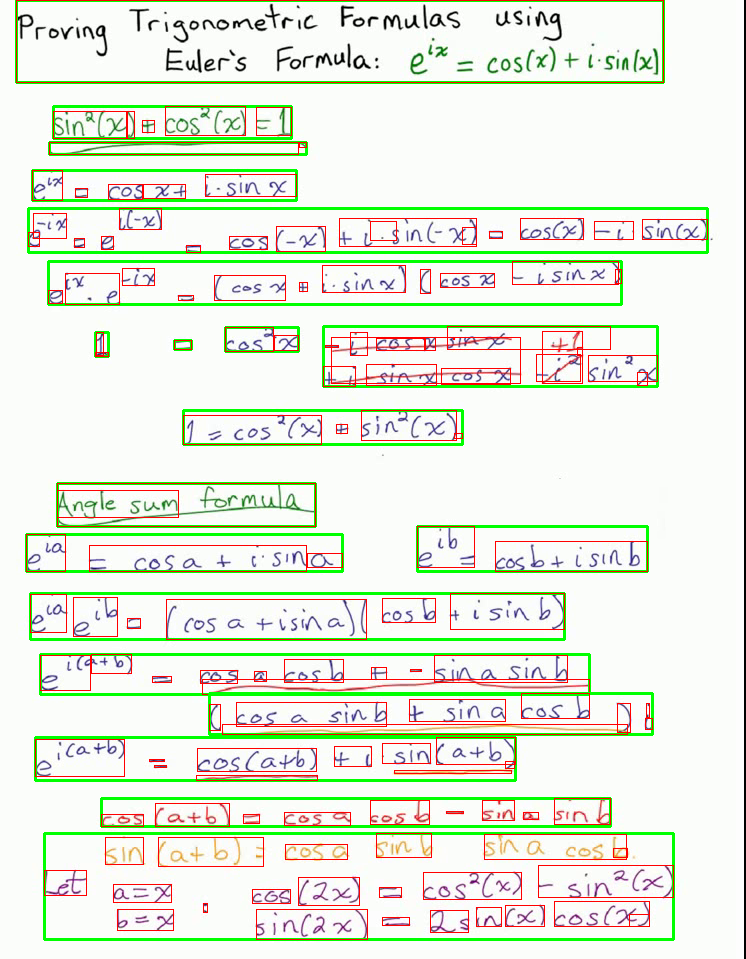 Proving Trigonometric Formulas using
Euler's Formula: e^{ix} = cos(x) + i·sin(x)
sin²(x) + cos²(x) = 1
e^{ix} = cos x + i·sin x
e^{-ix} = e^{i(-x)} = cos(-x) + i·sin(-x) = cos(x) - i sin(x).
e^{ix}·e^{-ix} = (cos x + i·sin x)(cos x - i sin x)
1 = cos²x - i cos x sin x +1
+ i sin x cos x - i² sin²x
1 = cos²(x) + sin²(x).
Angle sum formula
e^{ia} = cos a + i·sin a e^{ib} = cos b + i sin b
e^{ia} e^{ib} = (cos a + i sin a)(cos b + i sin b)
e^{i(a+b)} = cos a cos b + - sin a sin b
(cos a sin b + sin a cos b) i
e^{i(a+b)} = cos(a+b) + i sin(a+b).
cos(a+b) = cos a cos b - sin a sin b
sin(a+b) = cos a sin b sin a cos b.
Let a=x cos(2x) = cos²(x) - sin²(x)
b=x sin(2x) = 2sin(x) cos(x)